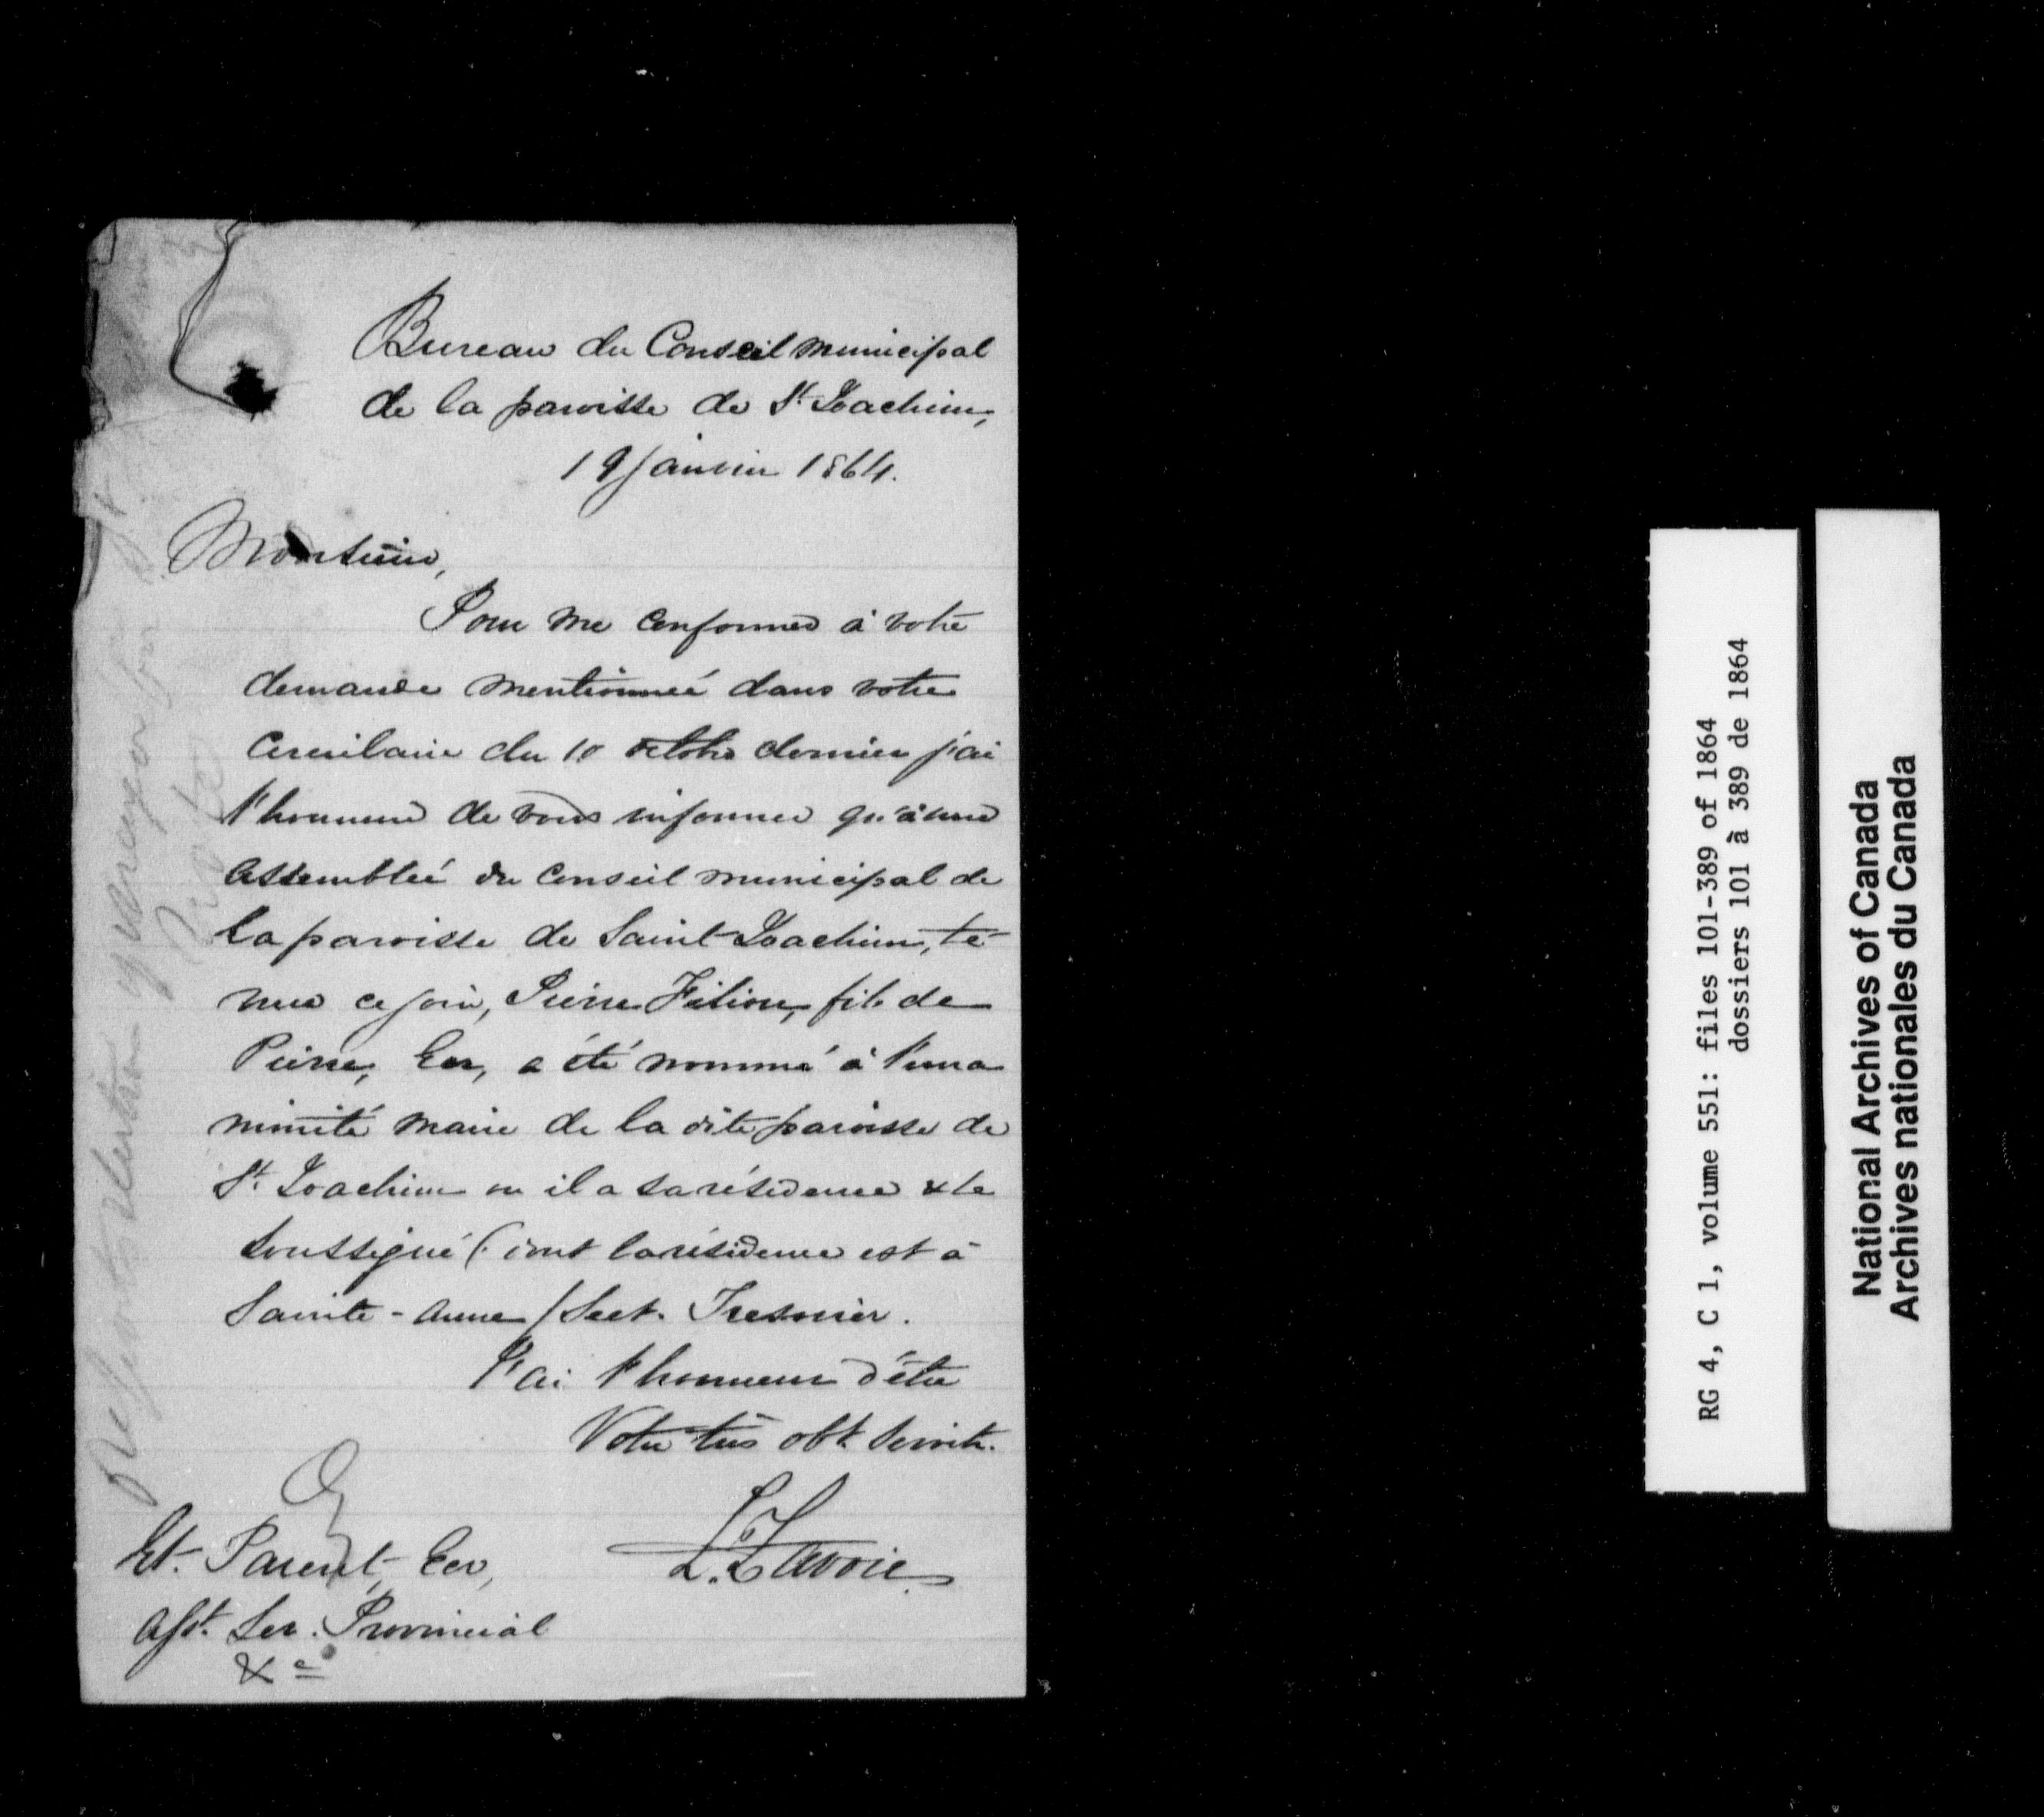 Bureau du Conseil municipal
de la paroisse de St. Joachim,
19 janvier 1864.
Monsieur,
Pour me conformer à votre
demande mentionnée dans votre
circulaire du 10 octobre dernier j'ai
l'honneur de vous informer qu'à une
assemblée du Conseil municipal de
la paroisse de Saint-Joachim, te-
nue ce jour, Pierre Filion, fils de
Pierre, Ecr, a été nommé à l'una
nimité maire de la dite paroisse de
St. Joachim ou il a sa résidence & le
soussigné (dont la résidence est à
Sainte-Anne) Sect. Trésorier.
J'ai l'honneur d'être
Votre très obt. Servitr.
L. Lavoie
Et. Parent, Ecr,
Asst. Sec. Provincial
&c
RG 4, C 1, volume 551: files 101-389 of 1864
dossiers 101 à 389 de 1864
National Archives of Canada
Archives nationales du Canada